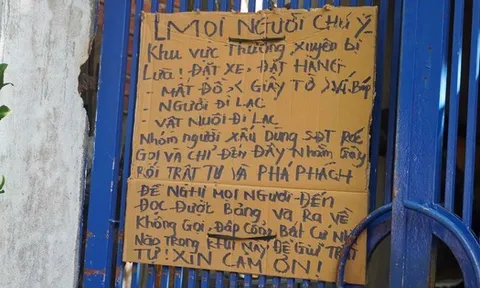 MỌI NGƯỜI CHÚ Ý
Khu vực Thường xuyên bị
Lừa! ĐẶT XE, ĐẶT HÀNG
- MẤT ĐỒ >< GIẤY TỜ > Ví, Bóp
NGƯỜI ĐI LẠC
- VẬT NUÔI ĐI LẠC
Nhóm người XẤU DÙNG SĐT RÁC
GỌI VÀ CHỈ ĐẾN ĐÂY Nhằm Gây
RỐI TRẬT TỰ VÀ PHÁ PHÁCH
ĐỀ NGHỊ MỌI NGƯỜI ĐẾN
ĐỌC ĐƯỢC Bảng Và Ra VỀ
Không Gọi, Đập Cổng Bất Cứ Nhà
Nào Trong KHU NÀY ĐỂ GIỮ TRẬT
TỰ! XIN CẢM ƠN!